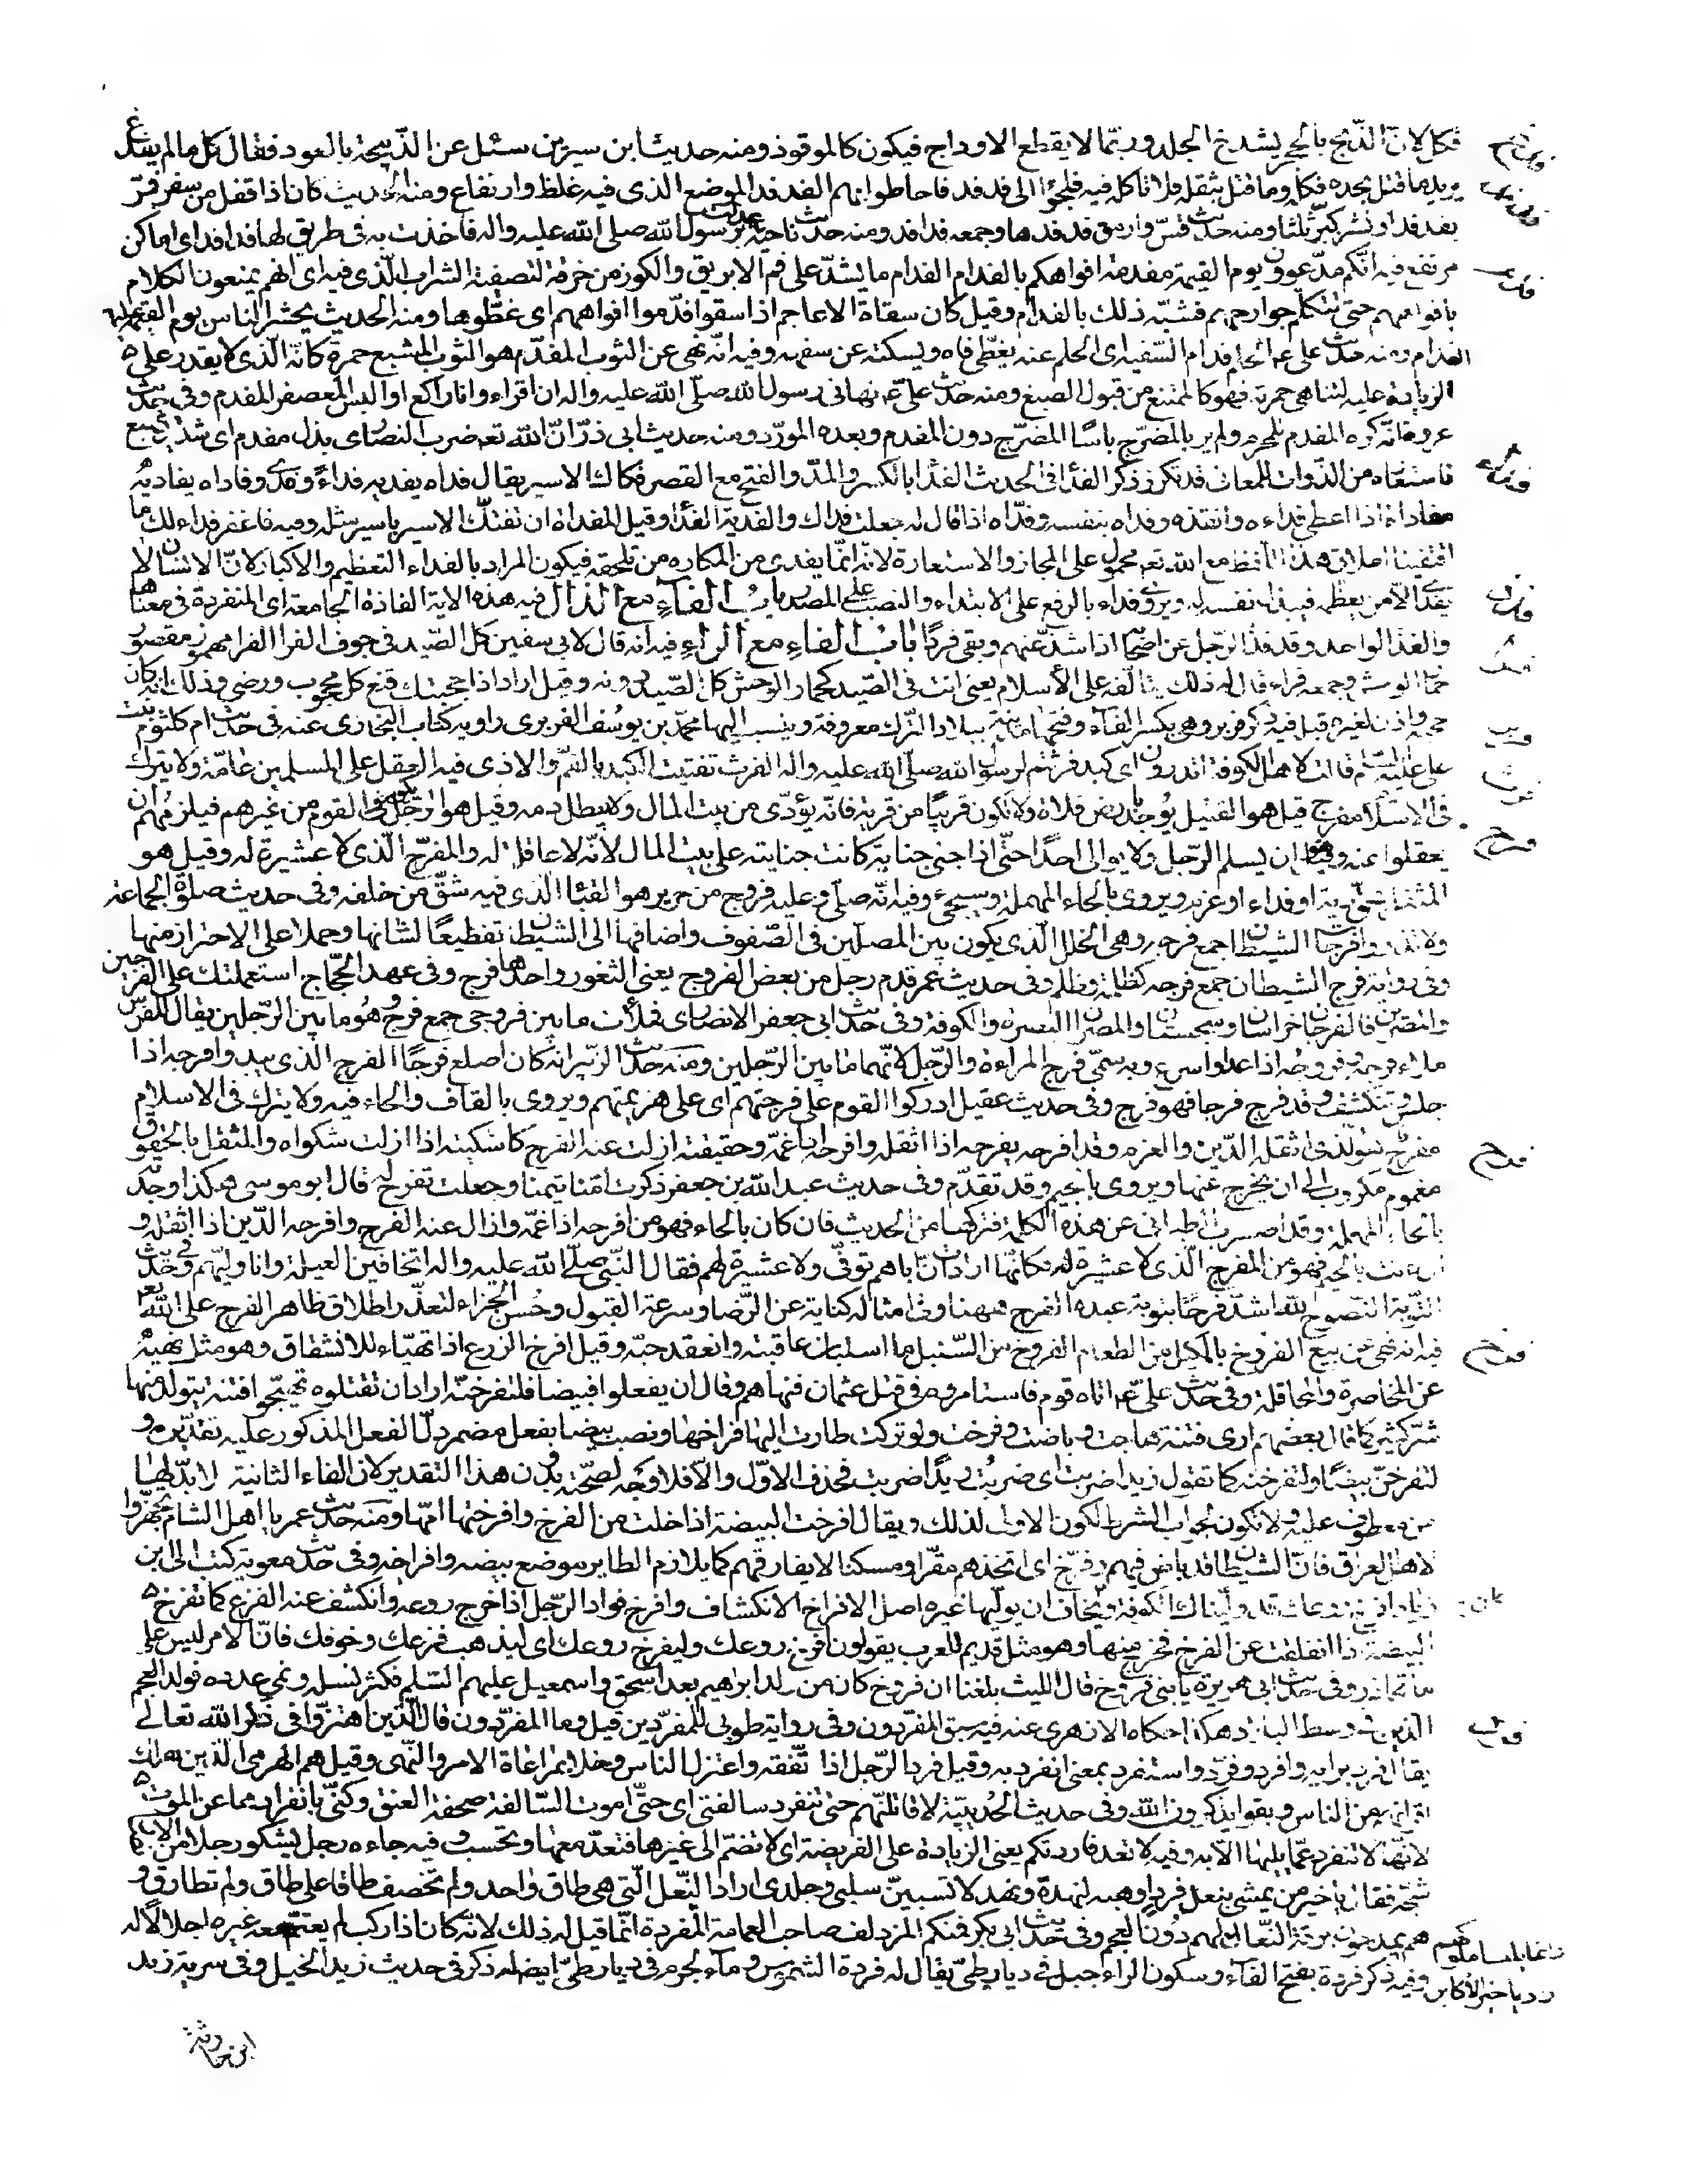 فكل لان الذبح بالحجر يشدخ الجلد وربما لا يقطع الاوداج فيكون كالموقوذ ومنه حديث ابن سيرين سئل عن الذبيحة بالعود فقال كل ما لم يفدغ
يريد ما قتل بحده فكله وما قتل بثقله فلا تاكله فيه فلجؤا الى فدفد فاحاطوا بهم الفدفد الموضع الذى فيه غلظ وارتفاع ومنه الحديث كان اذا قفل من سفر فمر
بفدفد او نشز كبر ثلثا ومنه حديث قس وارمق فدفدها وجمعه فدافد ومنه حديث ناجية عدلت برسول الله صلى الله عليه واله فاخذت به فى طريق لها فدافد اى اماكن
مرتفعة فيه انكم مدعوون يوم القيمة مفدمة افواهكم بالفدام الفدام ما يشد على فم الابريق والكوز من خرقة لتصفية الشراب الذى فيه اى انهم يمنعون الكلام
بافواههم حتى تتكلم جوارحهم فشبه ذلك بالفدام وقيل كان سقاة الاعاجم اذا سقوا فدموا افواههم اى غطوها ومنه الحديث يحشر الناس يوم القيمة عليهم
الفدام ومنه حديث على ع الحلم فدام السفيه اى الحلم عنه يغطى فاه ويسكته عن سفهه وفيه انه نهى عن الثوب المفدم هو الثوب المشبع حمرة كانه الذى لا يقدر على
الزيادة عليه لتناهى حمرته فهو كالممتنع من قبول الصبغ ومنه حديث على ع نهانى رسول الله صلى الله عليه واله ان اقراء وانا راكع او البس المعصفر المفدم وفى حديث
عروة انه كره المفدم للمحرم ولم ير بالمضرج باسا المضرج دون المفدم وبعده المورد ومنه حديث ابى ذر ان الله تع ضرب النصارى بذل مفدم اى شديد مشبع
فاستعاره من الذوات للمعانى قد تكرر ذكر الفداء فى الحديث الفداء بالكسر والمد والفتح مع القصر فكاك الاسير يقال فداه يفديه فداء وفدى وفاداه يفاديه
مفاداة اذا اعطى فداءه وانقذه وفداه بنفسه وفداه اذا قال له جعلت فداك والفدية الفداء وقيل المفاداة ان تفتك الاسير باسير مثله وفيه فاغفر فداء لك ما
اقتفينا اطلاق هذا اللفظ مع الله تع محمول على المجاز والاستعارة لانه انما يفدى من المكاره من تلحقه فيكون المراد بالفداء التعظيم والاكبار لان الانسان لا
يفدى الا من يعظمه فيبذل نفسه له ويروى فداء بالرفع على الابتداء والنصب على المصدر باب الفاء مع الذال فيه هذه الاية الفاذة الجامعة اى المنفردة فى معناها
والفذ الواحد وقد فذ الرجل عن اصحابه اذا شذ عنهم وبقى فردا باب الفاء مع الراء فيه انه قال لابى سفين كل الصيد فى جوف الفرا الفرا مهموز مقصور
حمار الوحش وجمعه فراء قال له ذلك يتالفه على الاسلام يعنى انت فى الصيد كحمار الوحش كل الصيد دونه وقيل اراد اذا حجبتك قنع كل محجوب ورضى وذلك انه كان
حجبه واذن لغيره قبله فيه ذكر فربر وهى بكسر الفاء وفتحها مدينة ببلاد الترك معروفة وينسب اليها محمد بن يوسف الفربرى راوية كتاب البخارى عنه فى حديث ام كلثوم بنت
على عليه السلام قالت لاهل الكوفة اتدرون اى كبد فرثتم لرسول الله صلى الله عليه واله الفرث تفتيت الكبد بالغم والاذى فيه العقل على المسلمين عامة ولا يترك
فى الاسلام مفرج قيل هو القتيل يوجد بارض فلاة ولا تكون قريبا من قرية فانه يؤدى من بيت المال ولا يبطل دمه وقيل هو الرجل يكون فى القوم من غيرهم فيلزمهم ان
يعقلوا عنه وقيل هو ان يسلم الرجل ولا يوالى احدا حتى اذا جنى جناية كانت جنايته على بيت المال لانه لا عاقلة له والمفرج الذى لا عشيرة له وقيل هو
المثقل بحق دية او فداء او غرم ويروى بالحاء المهملة وسيجئ وفيه انه صلى وعليه فروج من حرير هو القباء الذى فيه شق من خلفه وفى حديث صلوة الجماعة
ولا تذروا فرجات الشيطان جمع فرجة وهى الخلل الذى يكون بين المصلين فى الصفوف واضافها الى الشيطان تفظيعا لشانها وحملا على الاحتراز منها
وفى رواية فرج الشيطان جمع فرجة كظلمة وظلم وفى حديث عمر قدم رجل من بعض الفروج يعنى الثغور واحدها فرج وفى عهد الحجاج استعملتك على الفرجين
والمصرين فالفرجان خراسان وسجستان والمصران البصرة والكوفة وفى حديث ابى جعفر الانصارى فملأت ما بين فروجى جمع فرج هو ما بين الرجلين يقال للفرس
ملاء فرجه وفروجه اذا عدا واسرع وبه سمى فرج المراءة والرجل لانهما ما بين الرجلين ومنه حديث الزبير انه كان اصلع فرجا الفرج الذى يبدو فرجه اذا
جلس وتنكشف وقد فرج فرجا فهو فرج وفى حديث عقيل ادركوا القوم على فرجتهم اى على هزيمتهم ويروى بالقاف والحاء فيه ولا يترك فى الاسلام
مفرح هو الذى اثقله الدين والغرم وقد افرحه يفرحه اذا اثقله وافرحه اذا غمه وحقيقته ازلت عنه الفرح كاشكيته اذا ازلت شكواه والمثقل بالحقوق
مغموم مكروب الى ان يخرج عنها ويروى بالجيم وقد تقدم وفى حديث عبد الله بن جعفر ذكرت امنا يتمنا وجعلت تفرح له قال ابو موسى هكذا وجدته
بالحاء المهملة وقد اضرب الطبرانى عن هذه الكلمة فتركها من الحديث فان كان بالحاء فهو من افرحه اذا غمه وازال عنه الفرح وافرحه الدين اذا اثقله و
ان كانت بالجيم فهو من المفرج الذى لا عشيرة له فكانها ارادت ان اباهم توفى ولا عشيرة لهم فقال النبى صلى الله عليه واله اتخافين العيلة وانا وليهم وفى حديث
التوبة النصوح لله اشد فرحا بتوبة عبده الفرح ههنا وفى امثاله كناية عن الرضا وسرعة القبول وحسن الجزاء لتعذر اطلاق ظاهر الفرح على الله تع
فيه انه نهى عن بيع الفروخ بالمكيل من الطعام الفروخ من السنبل ما استبان عاقبته وانعقد حبه وقيل افرخ الزرع اذا تهياء للانشقاق وهو مثل نهيه
عن المخاضرة والمحاقلة وفى حديث على ع اتاه قوم فاستامروه فى قتل عثمان فنهاهم وقال ان يفعلوا فبيضا فلتفرخنه اراد ان تقتلوه تهيجوا فتنة يتولد منها
شر كثير كما قال بعضهم ارى فتنة هاجت وباضت وفرخت ولو تركت طارت اليها فراخها ونصب بيضا بفعل مضمر دل الفعل المذكور عليه تقديره و
لتفرخن بيضا ولتفرخنه كما تقول زيدا ضربت اى ضربت زيدا ضربت فحذف الاول والا فلا وجه لصحته بدون هذا التقدير لان الفاء الثانية لا بد لها
من معطوف عليه ولا تكون لجواب الشرط لكون الاولى لذلك ويقال افرخت البيضة اذا خلت من الفرخ وافرختها امها ومنه حديث عمر يا اهل الشام تجهزوا
لاهل العراق فان الشيطان قد باض فيهم وفرخ اى اتخذهم مقرا ومسكنا لا يفارقهم كما يلازم الطاير موضع بيضه وافراخه وفى حديث معوية كتب الى ابن
زياد افرخ روعك قد وليناك الكوفة وكان يخاف ان يوليها غيره اصل الافراخ الانكشاف وافرخ فؤاد الرجل اذا خرج روعه وانكشف عنه الفزع كما تفرخ
البيضة اذا انفلقت عن الفرخ فخرج منها وهو مثل قديم للعرب يقولون افرخ روعك وليفرخ روعك اى ليذهب فزعك وخوفك فان الامر ليس على
ما تحاذر وفى حديث ابى هريرة يا بنى فروخ قال الليث بلغنا ان فروخ كان من ولد ابراهيم بعد اسحق واسمعيل عليهم السلم فكثر نسله ونمى عدده فولد العجم
الذين فى وسط البلاد هكذا حكاه الازهرى عنه فيه سبق المفردون وفى رواية طوبى للمفردين قيل وما المفردون قال الذين اهتزوا فى ذكر الله تعالى
يقال فرد برايه وافرد وفرد واستفرد بمعنى انفرد به وقيل فرد الرجل اذا تفقه واعتزل الناس وخلا بمراعاة الامر والنهى وقيل هم الهرمى الذين هلك
اقرانهم من الناس وبقوا يذكرون الله وفى حديث الحديبية لاقاتلنهم حتى تنفرد سالفتى اى حتى اموت السالفة صحفة العنق وكنى بانفرادهما عن الموت
لانها لا تنفرد عما يليها الا به وفيه لا تعد فاردتكم يعنى الزيادة على الفريضة اى لا تضم الى غيرها فتعد معها وتحسب وفيه جاءه رجل يشكو رجلا من الانصار
شجه فقال يا خير من يمشى بنعل فرد اوهبه لنهدة ونهد لا تسبين سلبى وجلدى اراد النعل التى هى طاق واحد ولم تخصف طاقا على طاق ولم تطارق و
هم يمدحون برقة النعال وانما يلبسها ملوكهم دون العجم وفى حديث ابى بكر فمنكم المزدلف صاحب العمامة المفردة انما قيل له ذلك لانه كان اذا ركب لم يعتم معه غيره اجلالا له
وفيه ذكر فردة بفتح الفاء وسكون الراء جبل فى ديار طى يقال له فردة الشموس وماء لجرم فى ديار طى ايضا له ذكر فى حديث زيد الخيل وفى سرية زيد
ابن حارثة